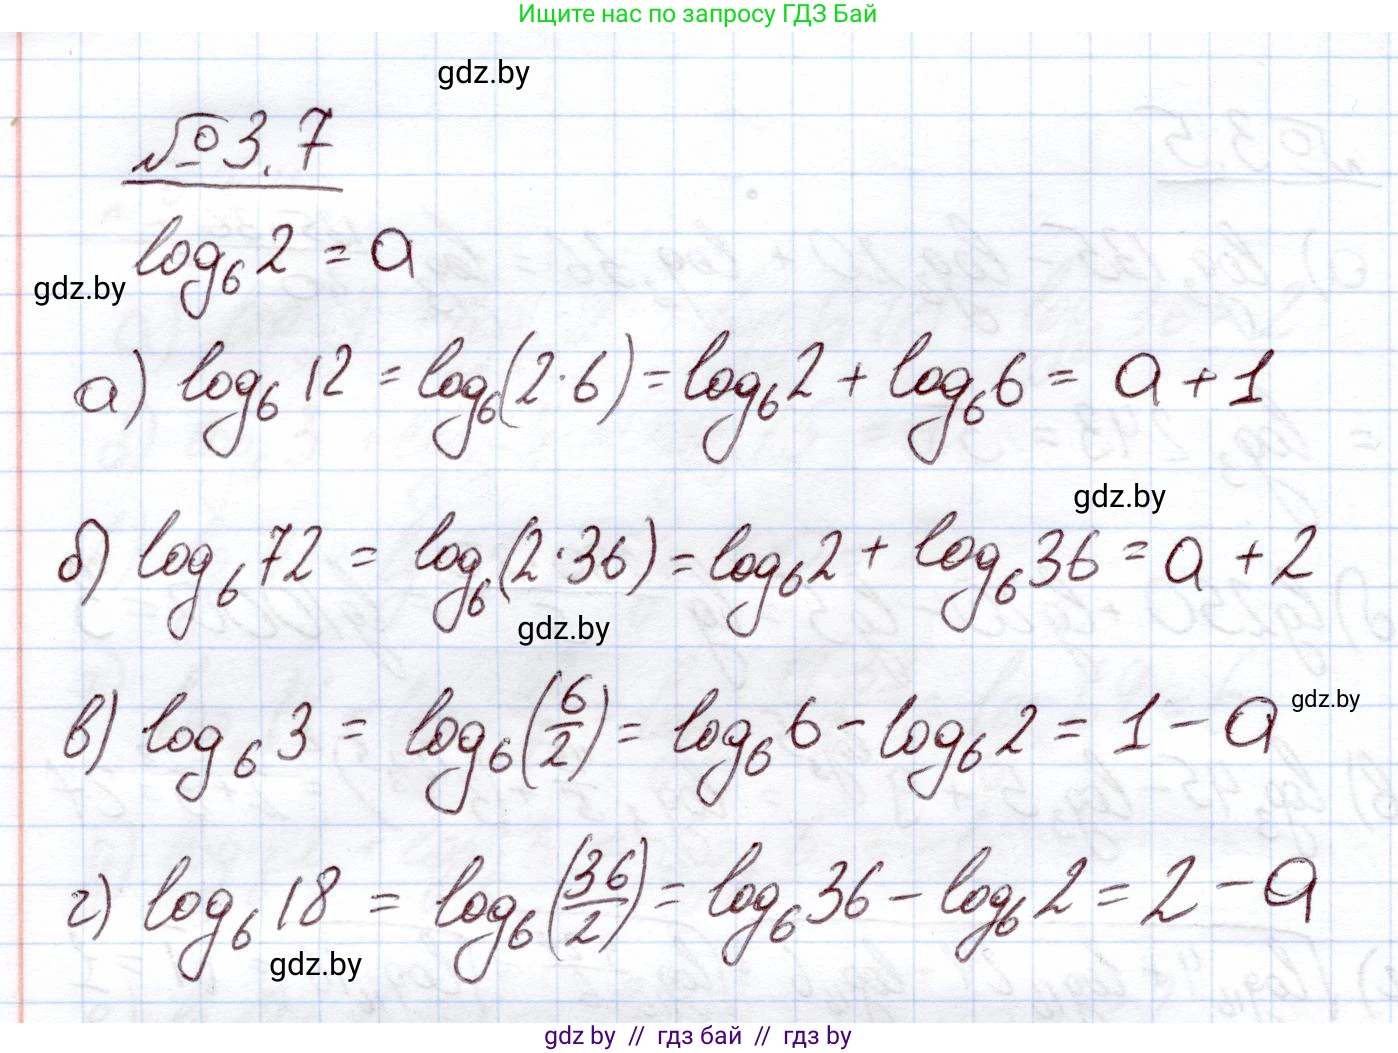 Ищите нас по запросу ГДЗ Бай
gdz.by
№3.7
log₆2 = a
gdz.by
а) log₆12 = log₆(2·6) = log₆2 + log₆6 = a + 1
gdz.by
б) log₆72 = log₆(2·36) = log₆2 + log₆36 = a + 2
gdz.by
в) log₆3 = log₆(6/2) = log₆6 - log₆2 = 1 - a
gdz.by
г) log₆18 = log₆(36/2) = log₆36 - log₆2 = 2 - a
gdz.by
gdz by // гдз бай // гдз by